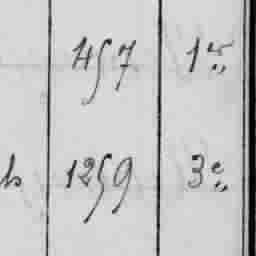 457 1re
1259 3e